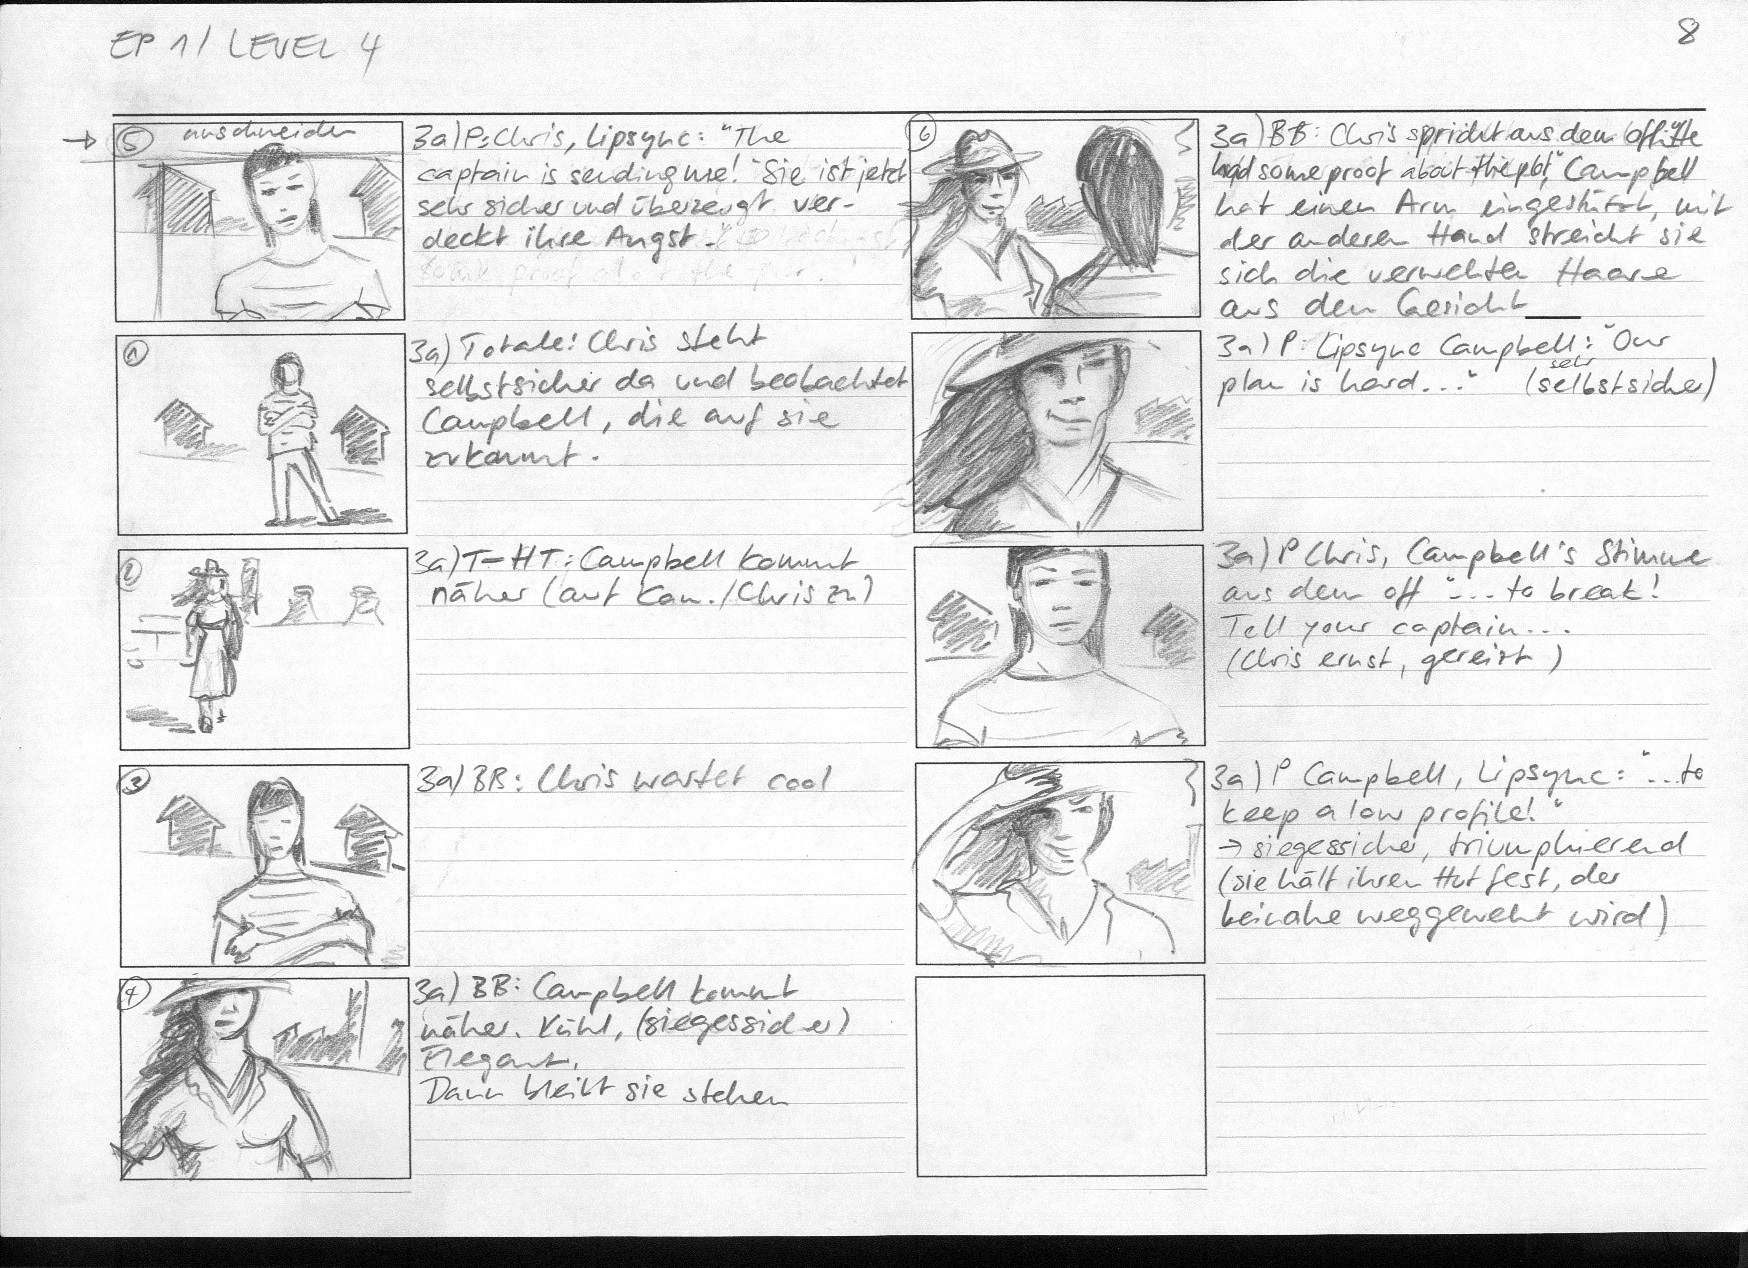 EP 1 / LEVEL 4
8
→ 5 anschneiden
3a) P: Chris, Lipsync: "The
captain is sending me!" Sie ist jetzt
sehr sicher und überzeugt, ver-
deckt ihre Angst.
1
3a) Totale: Chris steht
selbstsicher da und beobachtet
Campbell, die auf sie
zukommt.
2
3a) T-HT: Campbell kommt
näher (auf Kam./Chris zu)
3
3a) BB: Chris wartet cool
4
3a) BB: Campbell kommt
näher. Kühl, (siegessicher)
Elegant.
Dann bleibt sie stehen
6
3a) BB: Chris spricht aus dem off: "He
had some proof about the plot", Campbell
hat einen Arm eingestützt, mit
der anderen Hand streicht sie
sich die verwehten Haare
aus dem Gesicht
3a) P: Lipsync Campbell: "Our
plan is hard..." (sehr selbstsicher)
3a) P Chris, Campbell's Stimme
aus dem off "... to break!
Tell your captain...
(Chris ernst, gereizt)
3a) P Campbell, Lipsync: "...to
keep a low profile!"
→ siegessicher, triumphierend
(sie hält ihren Hut fest, der
beinahe weggeweht wird)